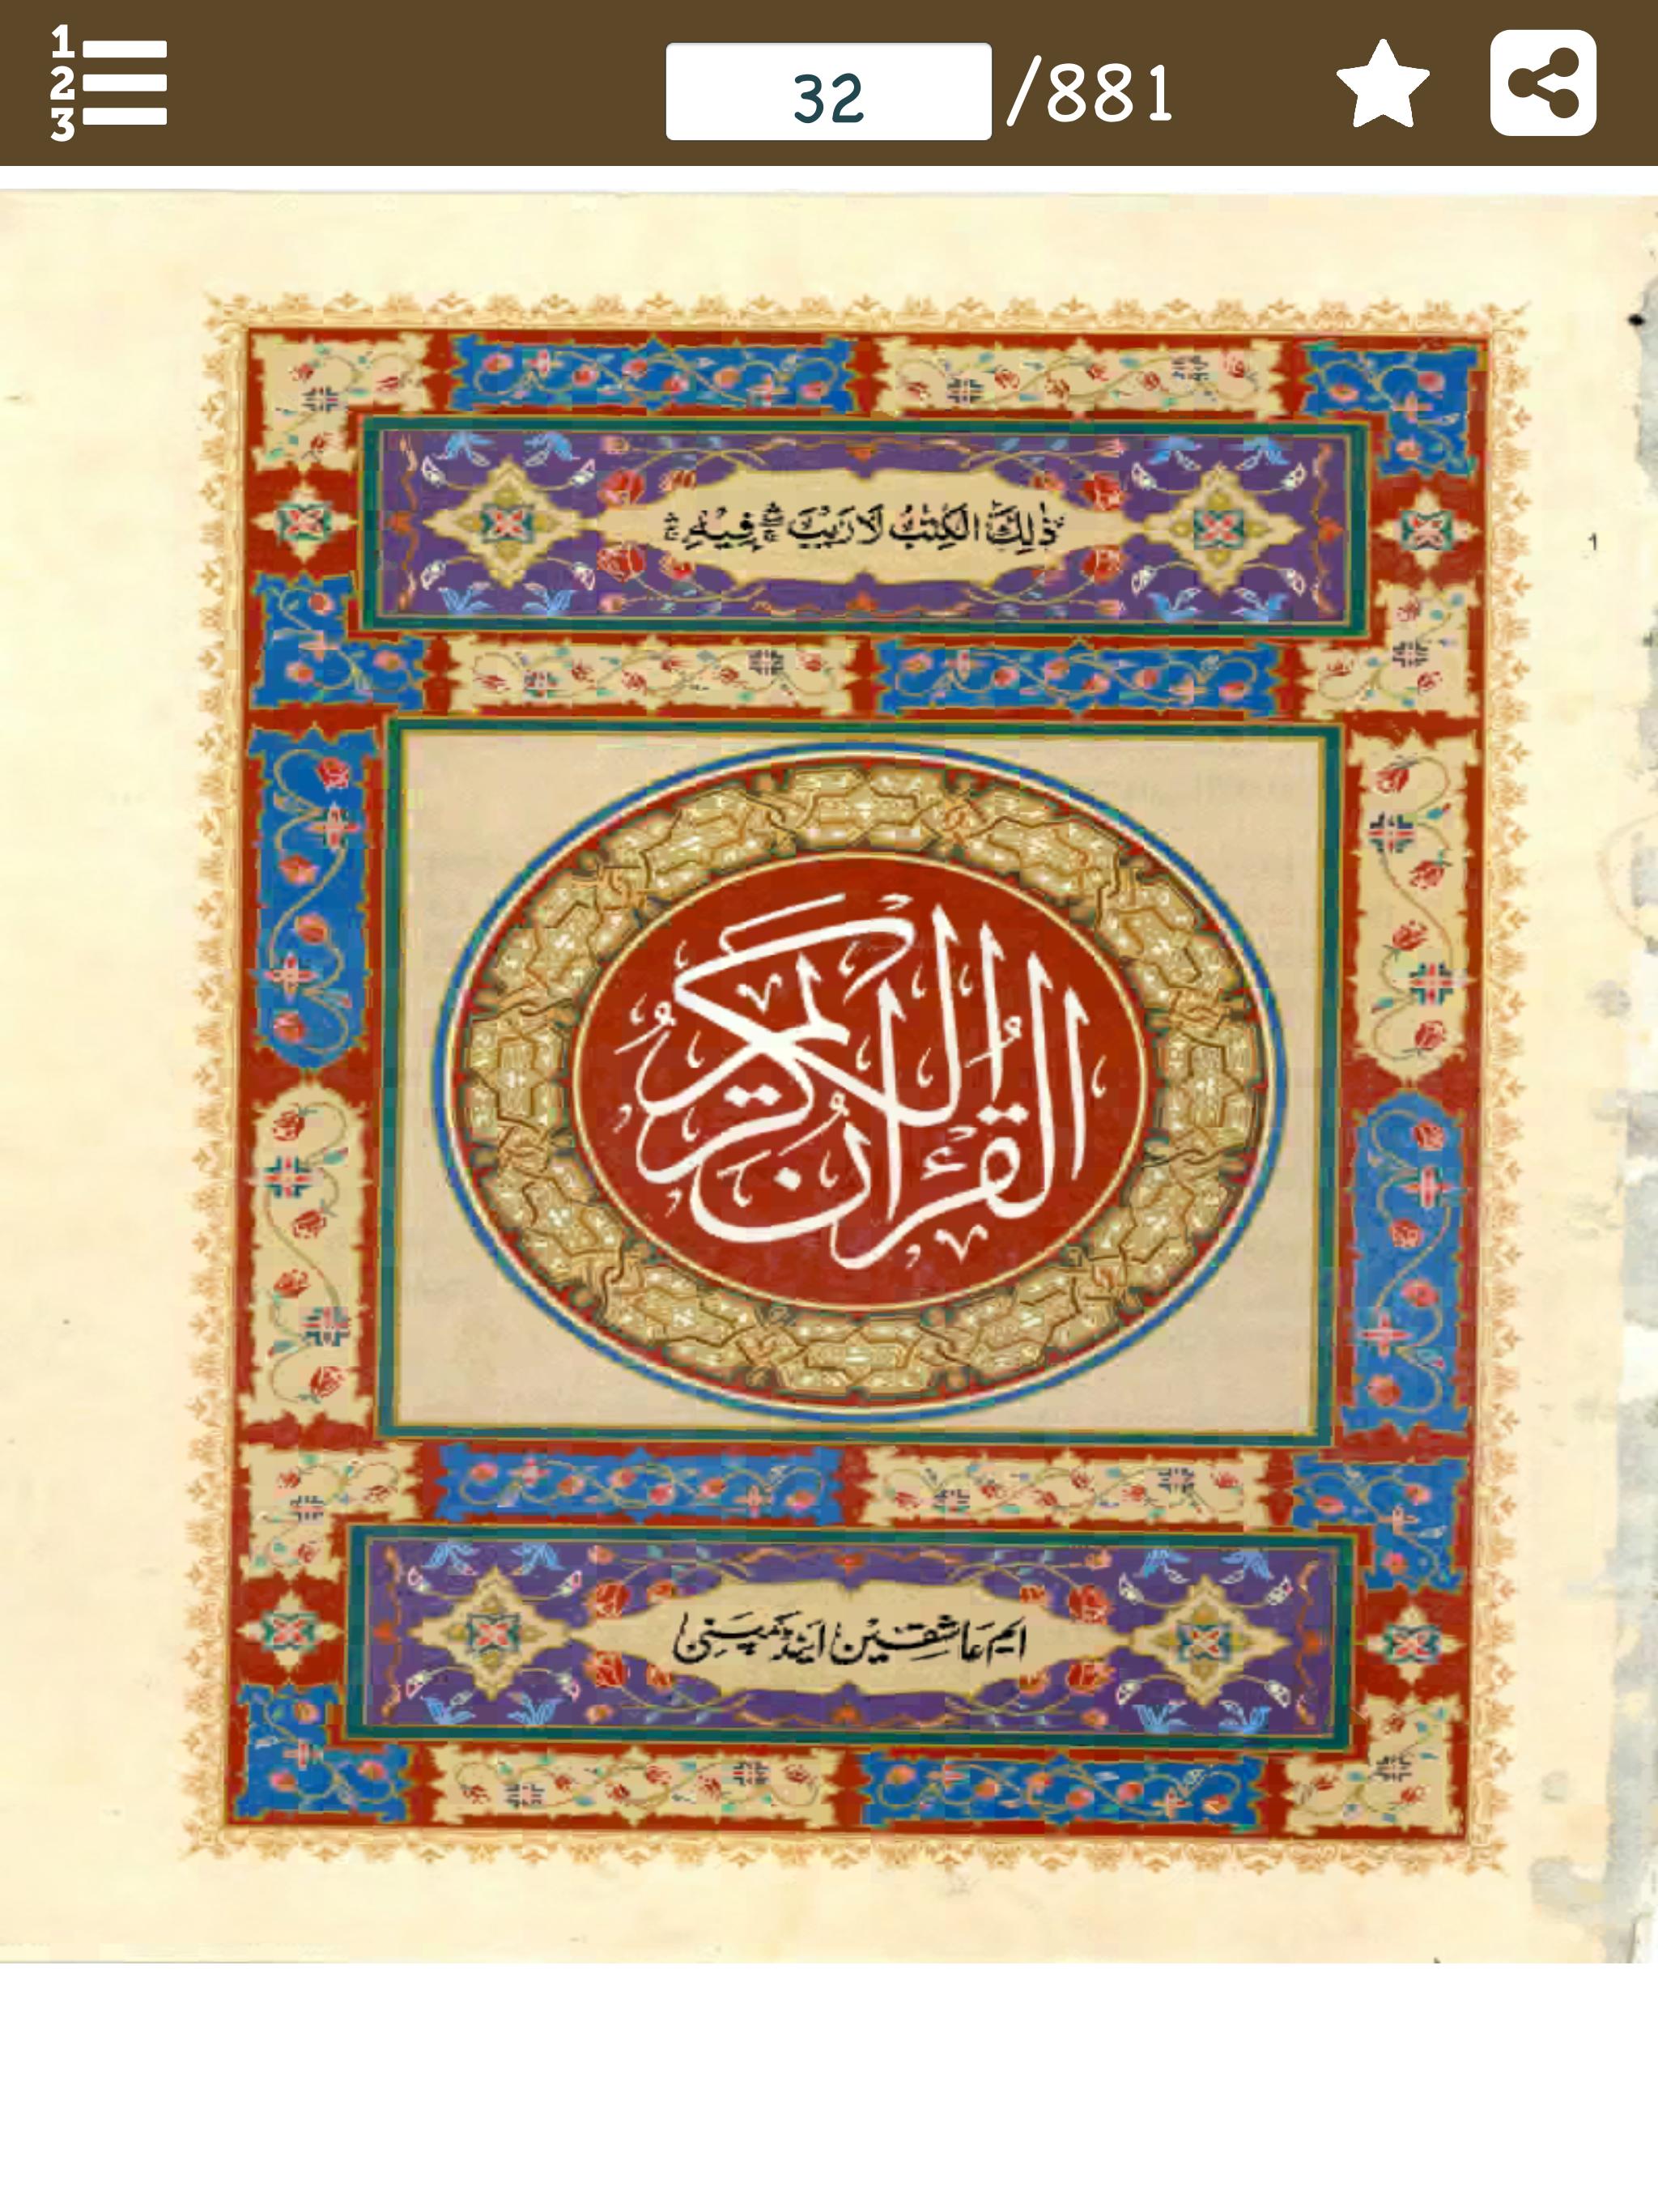 1
2
3
32 /881
ذٰلِكَ الْكِتٰبُ لَا رَيْبَ ۛۚ فِيْهِ ۛۚ
1
القرآن الكريم
ایم عاشقین اینڈ کمپنی